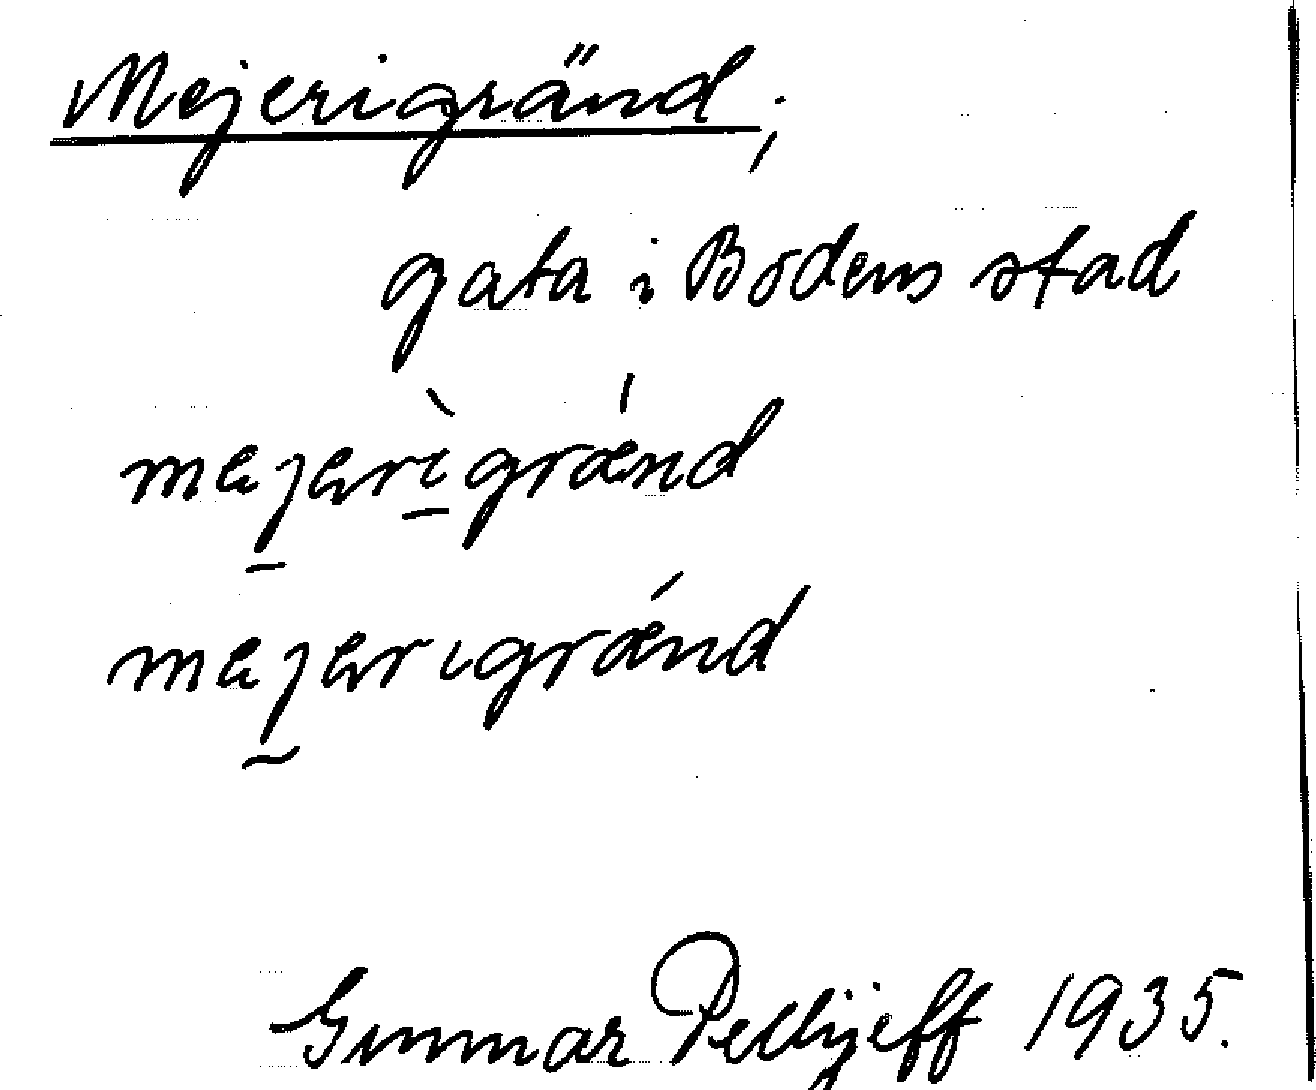 Mejerigränd;
gata i Bodens stad
mejerìgrænd
mejerıgrǽnd
Gunnar Pellijeff 1935.